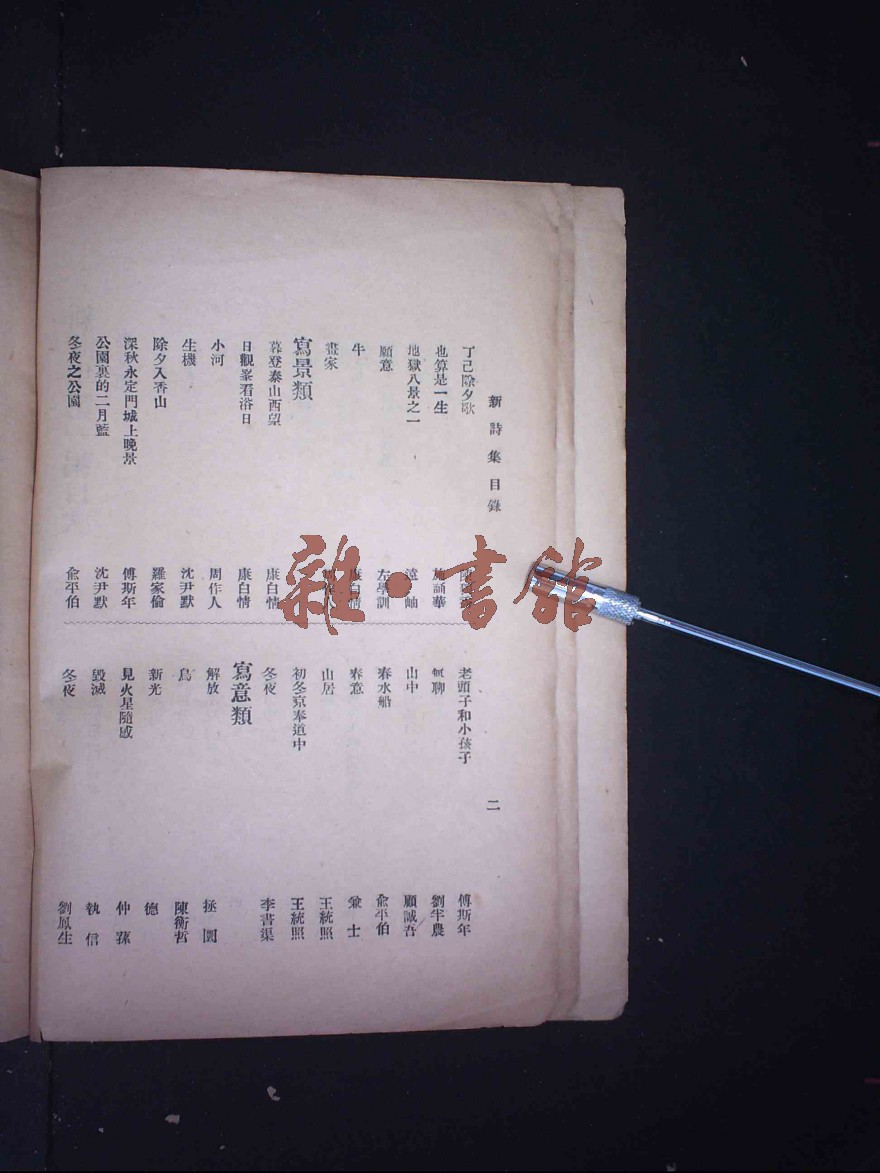 新詩集目錄 二
丁己除夕歌
也算是一生 誦華
地獄八景之一 岫
願意 左學訓
牛 康白情
畫家
寫景類
暮登泰山西望 康白情
日觀峯看浴日 康白情
小河 周作人
生機 沈尹默
除夕入香山 羅家倫
深秋永定門城上晚景 傅斯年
公園裏的二月藍 沈尹默
冬夜之公園 俞平伯
老頭子和小孩子 傅斯年
無聊 劉半農
山中 顧誠吾
春水船 俞平伯
春意 兼士
山居 王統照
初冬京奉道中 王統照
冬夜 李書渠
寫意類
解放 拯圜
鳥 陳衡哲
新光 德
見火星隨感 仲蓀
毀滅 執信
冬夜 劉鳳生
雜·書館